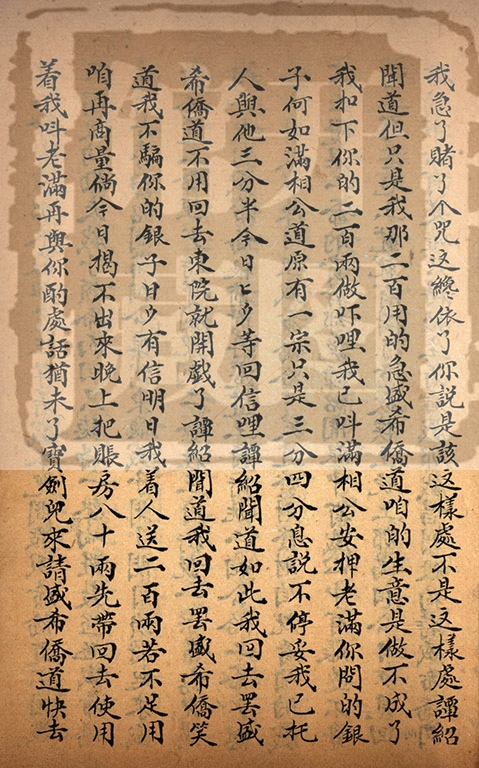 我急了賭了个咒这纔依了你説是該这樣處不是这樣處譚紹
聞道但只是我那二百用的急盛希僑道咱的生意是做不成了
我扣下你的二百兩做吓哩我已呌滿相公安押老滿你問的銀
子何如滿相公道原有一宗只是三分四分息説不停妥我已托
人與他三分半今日上夕等回信哩譚紹聞道如此我回去罢盛
希僑道不用回去東院就開戲了譚紹聞道我回去罢盛希僑笑
道我不騙你的銀子日夕有信明日我着人送二百兩若不足用
咱再商量倘今日揭不出來晚上把賬房八十兩先帶回去使用
着我呌老滿再與你酌處話猶未了寳劍児來請盛希僑道快去